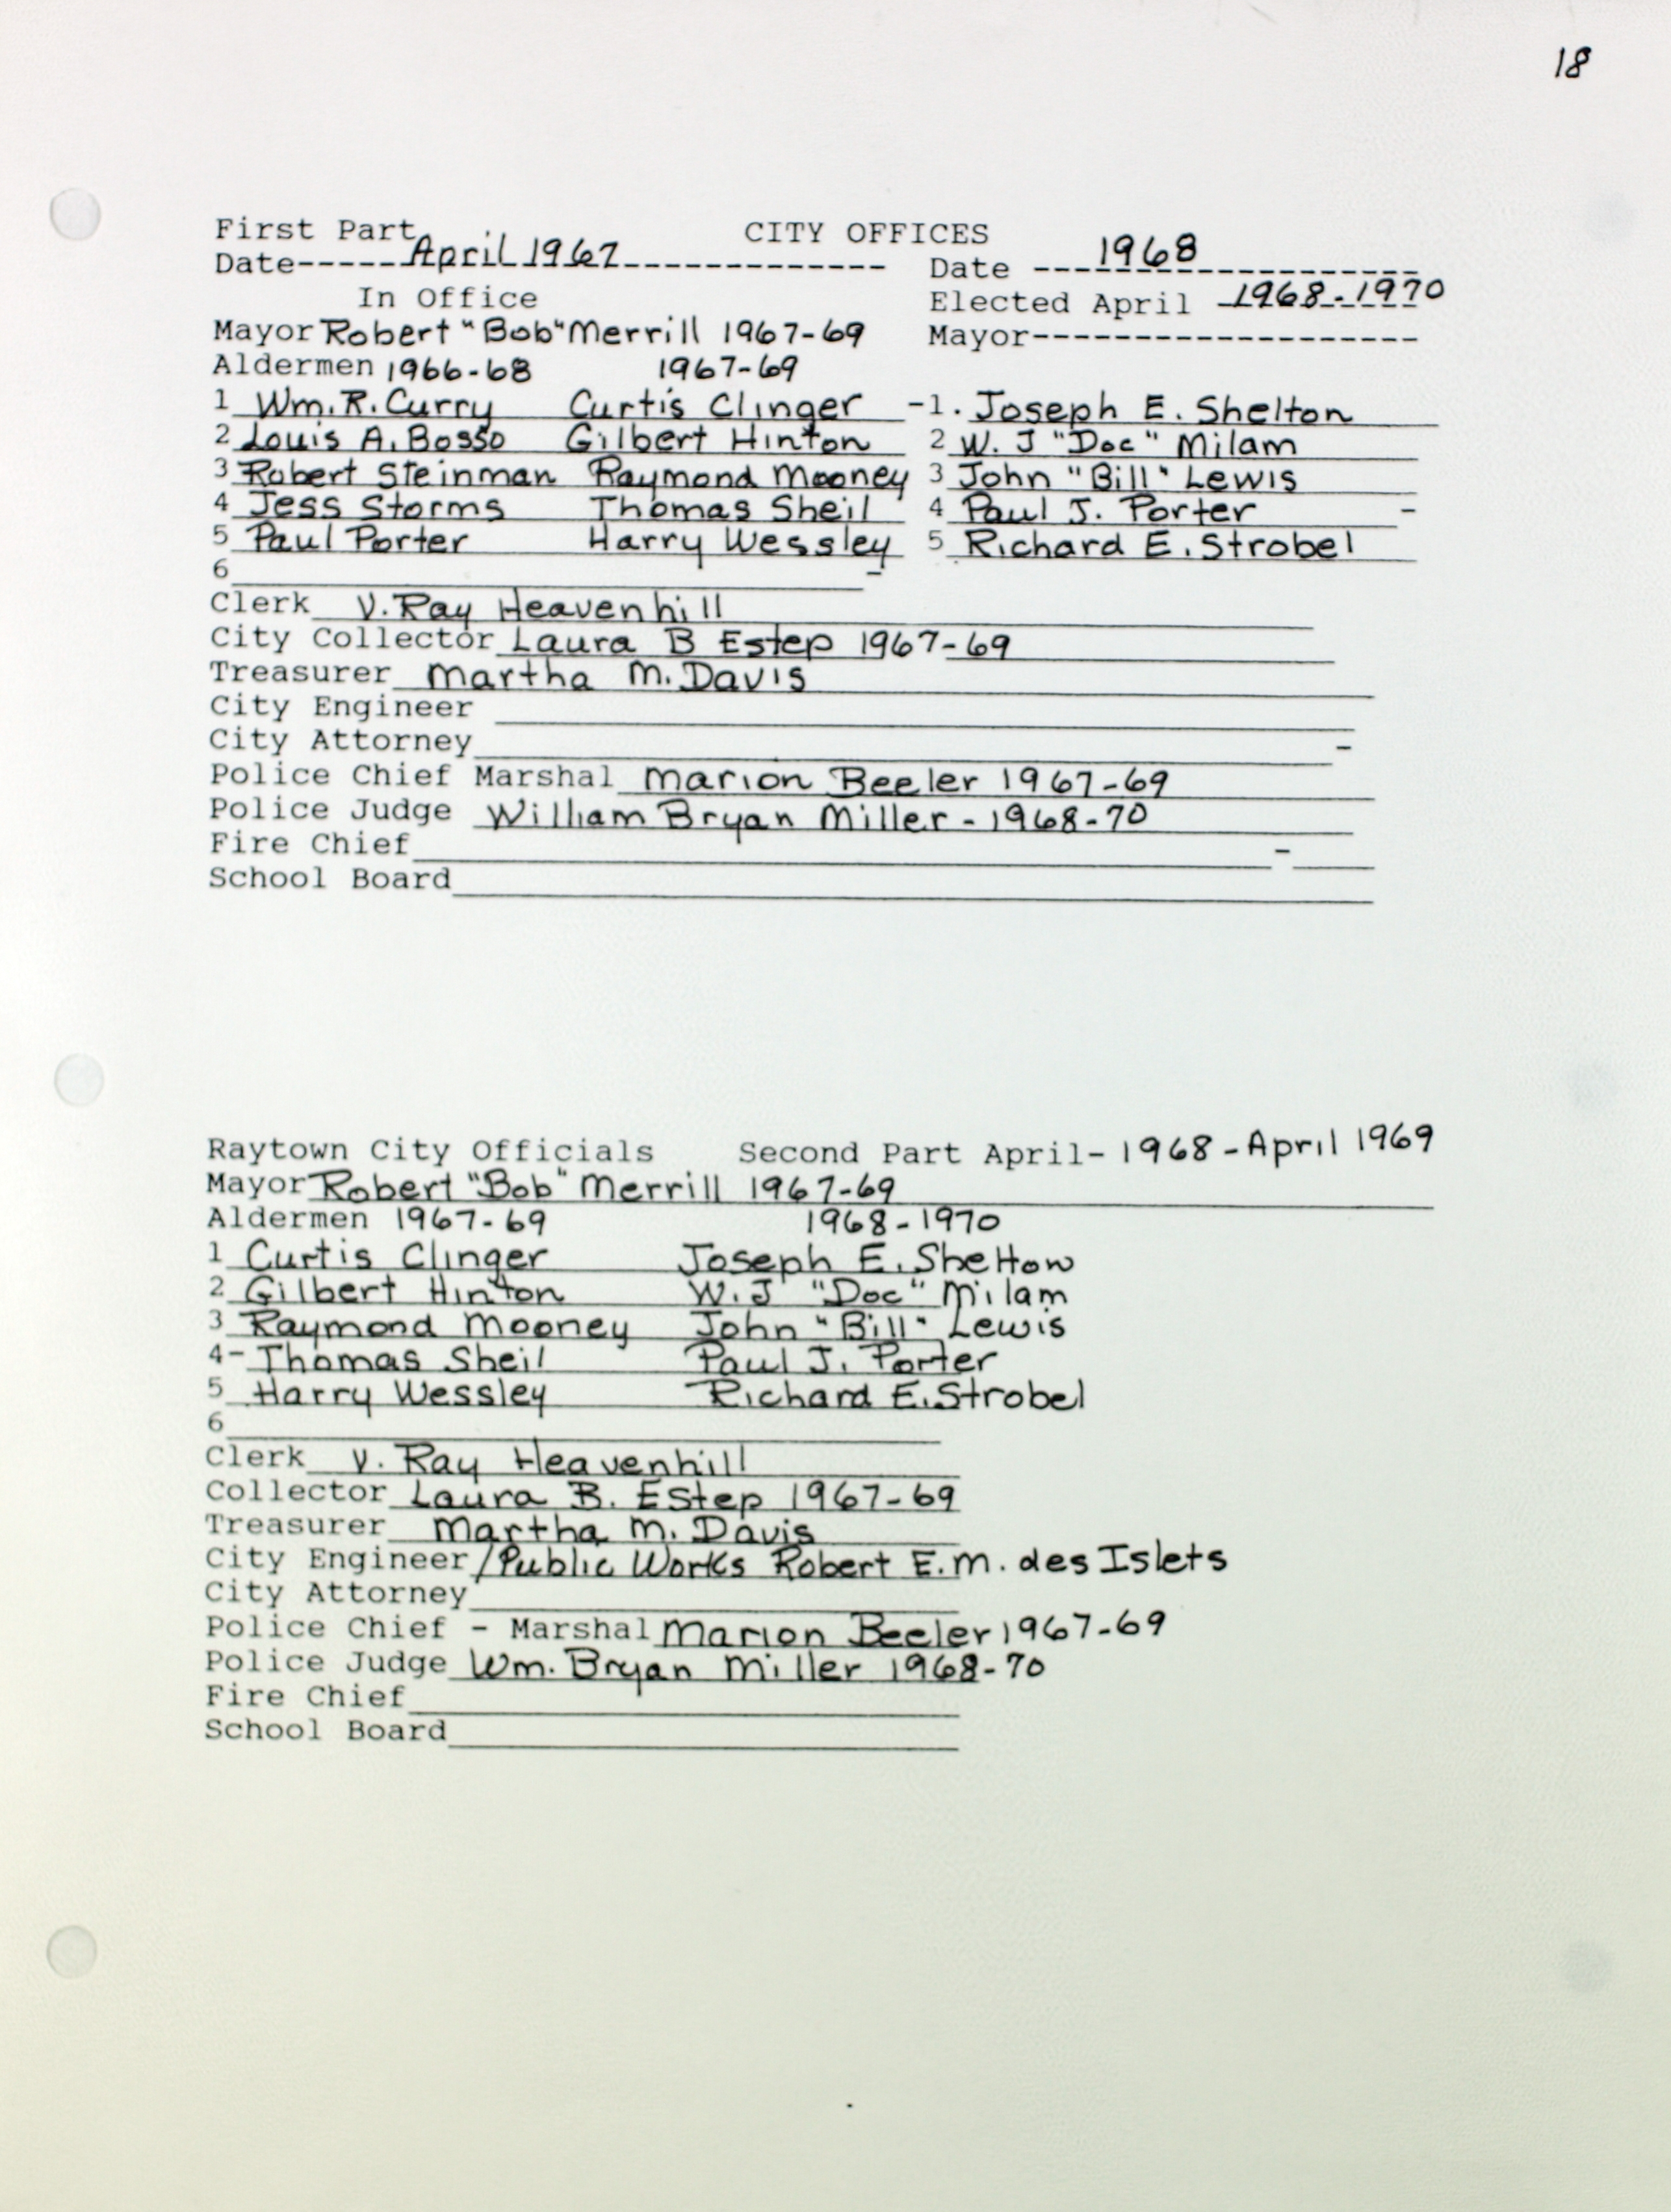 18
First Part CITY OFFICES
Date-----April 1967------------- Date ---1968-----------
In Office Elected April 1968-1970
Mayor Robert "Bob" Merrill 1967-69 Mayor-------------------
Aldermen 1966-68 1967-69
1 Wm. R. Curry Curtis Clinger -1. Joseph E. Shelton
2 Louis A. Bosso Gilbert Hinton 2 W. J "Doc" Milam
3 Robert Steinman Raymond Mooney 3 John "Bill" Lewis
4 Jess Storms Thomas Sheil 4 Paul J. Porter -
5 Paul Porter Harry Wessley 5 Richard E. Strobel
6 -
Clerk V. Ray Heavenhill
City Collector Laura B Estep 1967-69
Treasurer Martha M. Davis
City Engineer
City Attorney -
Police Chief Marshal Marion Beeler 1967-69
Police Judge William Bryan Miller - 1968-70
Fire Chief -
School Board
Raytown City Officials Second Part April- 1968 - April 1969
Mayor Robert "Bob" Merrill 1967-69
Aldermen 1967-69 1968-1970
1 Curtis Clinger Joseph E. Shelton
2 Gilbert Hinton W. J "Doc" Milam
3 Raymond Mooney John "Bill" Lewis
4- Thomas Sheil Paul J. Porter
5 Harry Wessley Richard E. Strobel
6
Clerk V. Ray Heavenhill
Collector Laura B. Estep 1967-69
Treasurer Martha M. Davis
City Engineer/Public Works Robert E. M. des Islets
City Attorney
Police Chief - Marshal Marion Beeler 1967-69
Police Judge Wm. Bryan Miller 1968-70
Fire Chief
School Board